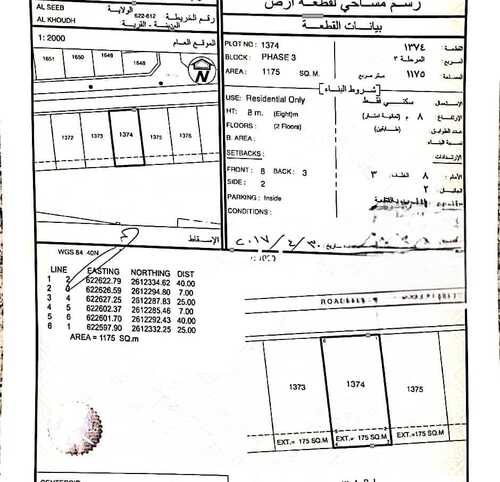 رسم مساحي لقطعة ارض
بيانات القطعة
AL SEEB
الولاية
622-612
رقم الخريطة
AL KHOUDH
المدينة - القرية
1: 2000
الموقع العام
1651
1650
1649
1648
N
1372
1373
1374
1375
1376
PLOT NO: 1374
١٣٧٤
القطعة:
BLOCK: PHASE 3
المرحلة ٣
المربع:
AREA: 1175 SQ. M.
متر مربع
١١٧٥
المساحة:
شروط البناء
USE: Residential Only
سكني فقط
الإستعمال:
HT: 8 m. (Eight)m
٨ م (ثمانية امتار)
الإرتفاع:
FLOORS: (2 Floors)
(طابقين)
عدد الطوابق:
B. AREA:
نسبة البناء:
SETBACKS:
الإرتدادات:
FRONT: 8 BACK: 3
الأمام: ٨ الخلف: ٣
SIDE: 2
الجانبان: ٢
PARKING: Inside
CONDITIONS:
الإسقاط
٢٠١٧/٤/٣٠
WGS 84 40N
LINE EASTING NORTHING DIST
1 2 622622.79 2612334.62 40.00
2 3 622626.59 2612294.80 7.00
3 4 622627.25 2612287.83 25.00
4 5 622602.37 2612285.46 7.00
5 6 622601.70 2612292.43 40.00
6 1 622597.90 2612332.25 25.00
AREA = 1175 SQ.m
1373
1374
1375
EXT.= 175 SQ.M
EXT.= 175 SQ.M
EXT.=175 SQ.M